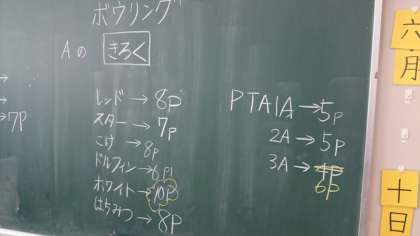 ボウリング
Aの きろく
→
→7P
レッド→8P
スター→7P
こけ→8P
ドルフィン→6P
ホワイト→10P
はちみつ→8P
PTA1A→5P
2A→5P
3A→
6P
六月
十日